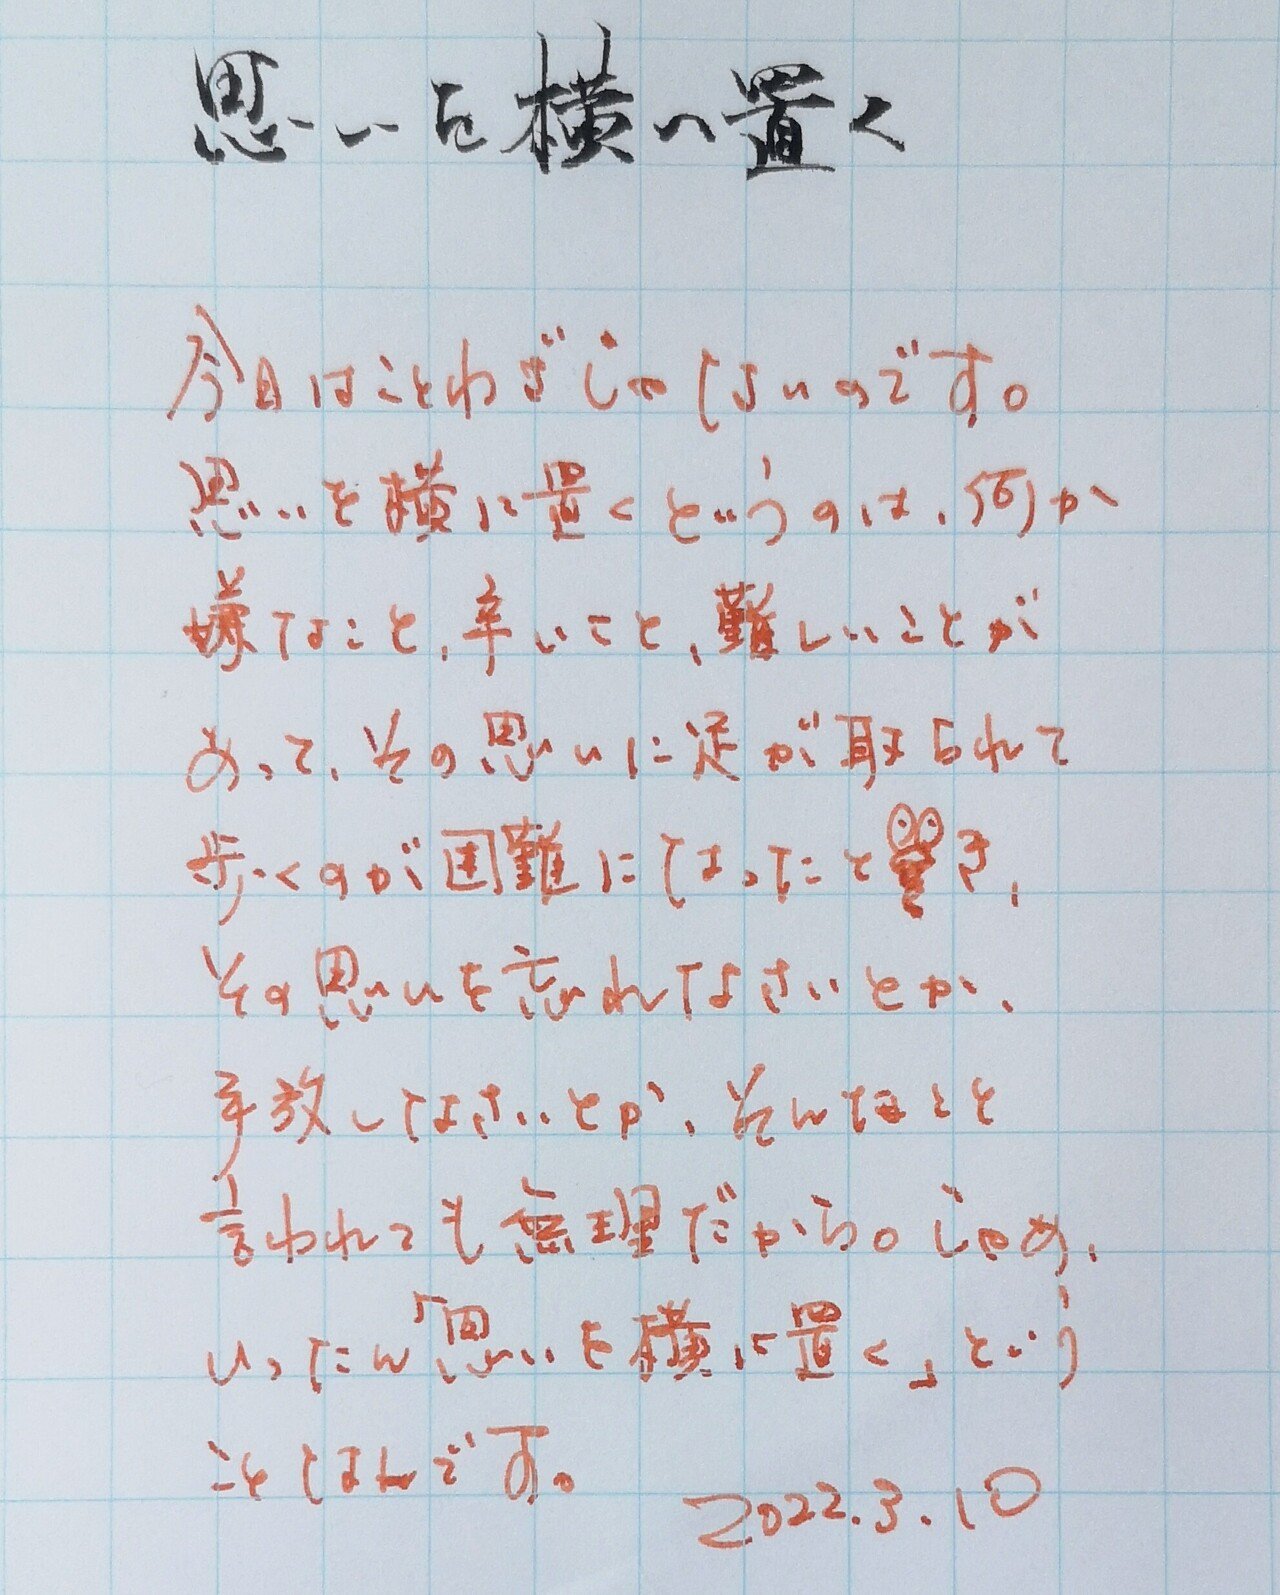 思いを横へ置く
今日はことわざじゃないのです。
思いを横に置くというのは、何か
嫌なこと、辛いこと、難しいことが
あって、その思いに足が取られて
歩くのが困難になったとき、
その思いを忘れなさいとか、
手放しなさいとか、そんなこと
言われても無理だから。じゃあ、
いったん「思いを横に置く」という
ことなんです。
2022.3.10